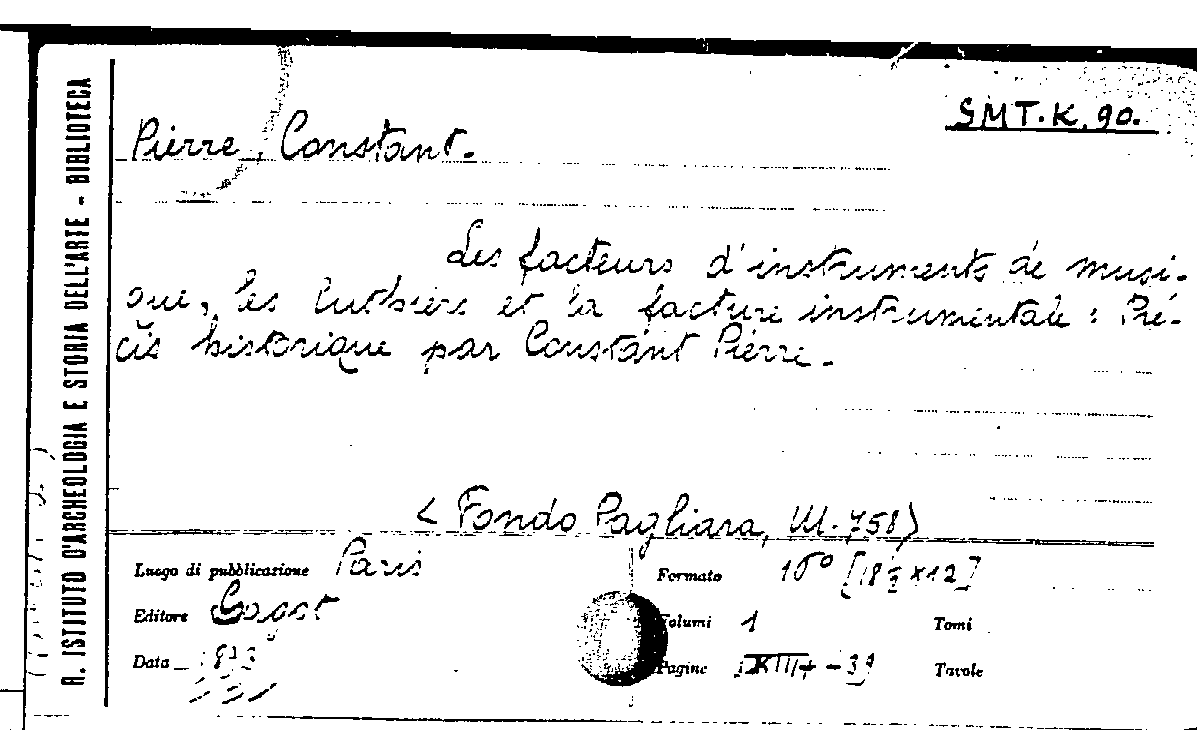 R. ISTITUTO D'ARCHEOLOGIA E STORIA DELL'ARTE - BIBLIOTECA
SMT.K.90.
Pierre, Constant.
Les facteurs d'instruments de musi-
que, les luthiers et la facture instrumentale: Pré-
cis historique par Constant Pierre.
<Fondo Pagliara, III.758>
Luogo di pubblicazione Paris
Formato 16° [18½×12]
Editore
Volumi 1 Tomi
Data
Pagine Tavole